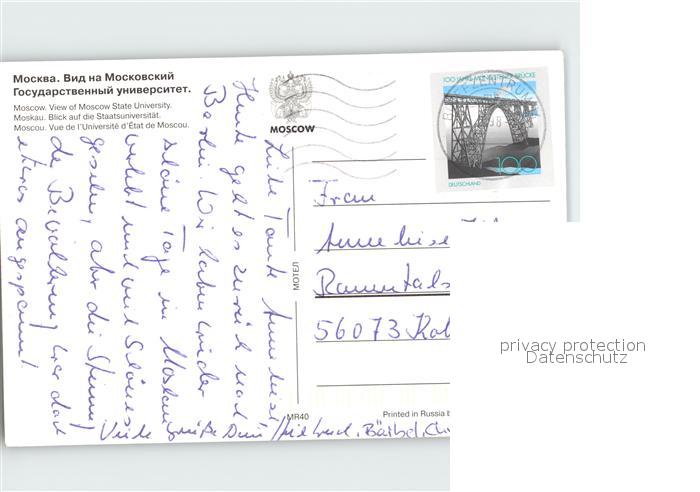 Москва. Вид на Московский
Государственный университет.
Moscow. View of Moscow State University.
Moskau. Blick auf die Staatsuniversität.
Moscou. Vue de l'Université d'État de Moscou.
MOSCOW
100 JAHRE MÜNGSTENER BRÜCKE
100
DEUTSCHLAND
Liebe Tante Anneliese
Heute geht es zurück nach
Berlin. Wir haben wieder
schöne Tage in Moskau
verlebt und viel Schönes
gesehen, aber die Stimmung
der Bevölkerung war doch
etwas angespannt!
Viele Grüße Bärbel,
Frau
Anneliese
56073
МОТЕЛ
MR40
Printed in Russia b
privacy protection
Datenschutz